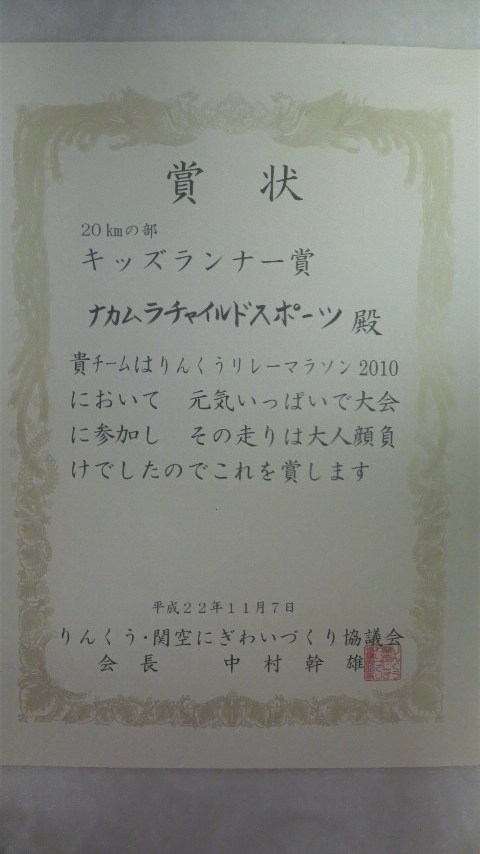 賞 状
20㎞の部
キッズランナー賞
ナカムラチャイルドスポーツ 殿
貴チームはりんくうリレーマラソン2010
において 元気いっぱいで大会
に参加し その走りは大人顔負
けでしたのでこれを賞します
平成22年11月7日
りんくう・関空にぎわいづくり協議会
会 長 中 村 幹 雄